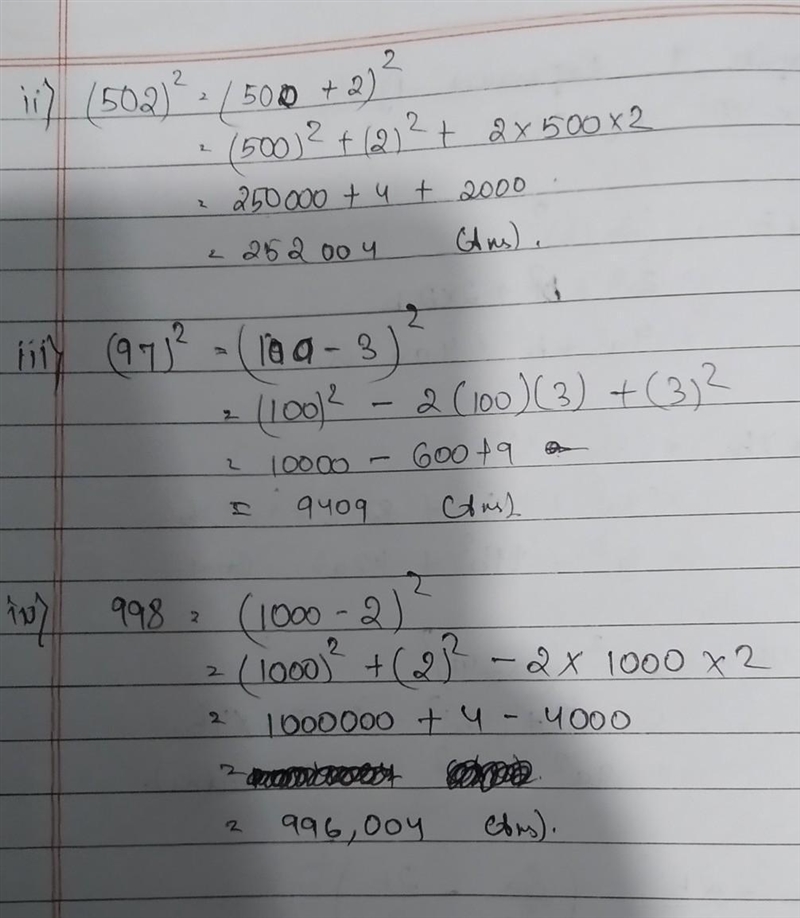 ii) (502)² = (500 + 2)²
= (500)² + (2)² + 2×500×2
= 250000 + 4 + 2000
= 252004 (Ans).
iii) (97)² = (100 - 3)²
= (100)² - 2(100)(3) + (3)²
= 10000 - 600+9
= 9409 (Ans)
iv) 998 = (1000 - 2)²
= (1000)² + (2)² - 2 × 1000 × 2
= 1000000 + 4 - 4000
=
= 996,004 (Ans).